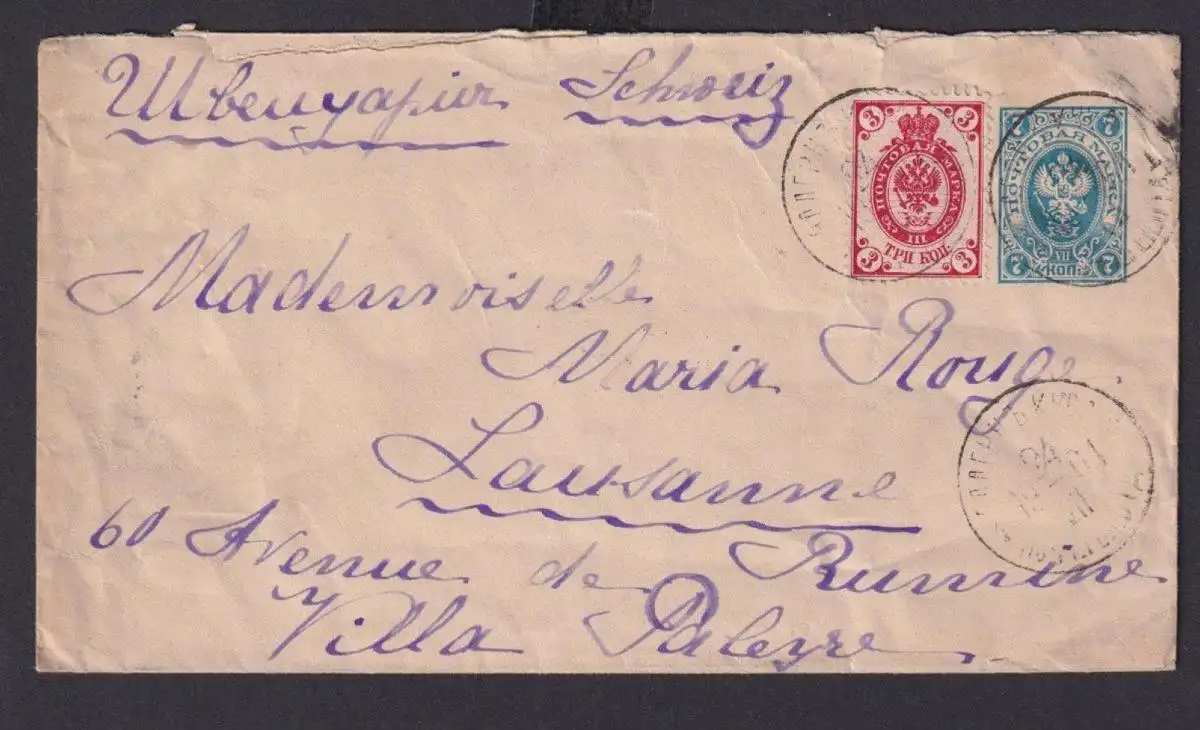 Швейцарія Schweiz
3 3
ПОЧТОВАЯ МАРКА
III.
3 ТРИ КОП. 3
7 7
ПОЧТОВАЯ МАРКА
VII
7 КОП. 7
Mademoiselle
Maria Rouge
Lausanne
60 Avenue de Rumine
Villa Paleyre